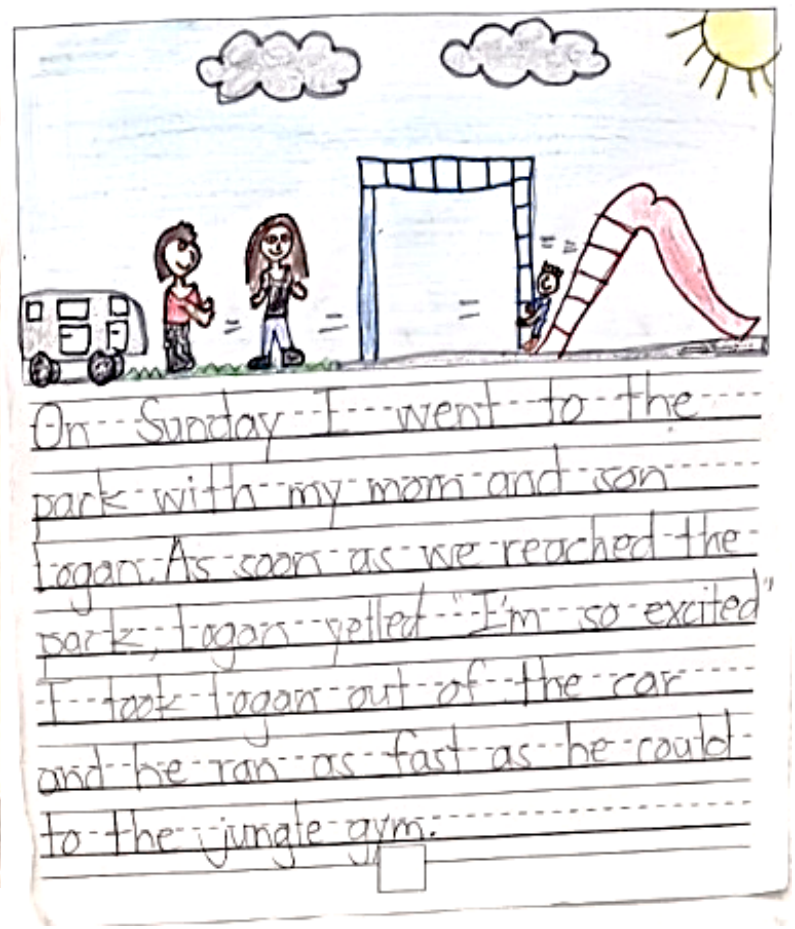 On Sunday I went to the
park with my mom and son
Logan. As soon as we reached the
park, Logan yelled "I'm so excited"
I took Logan out of the car
and he ran as fast as he could
to the jungle gym.